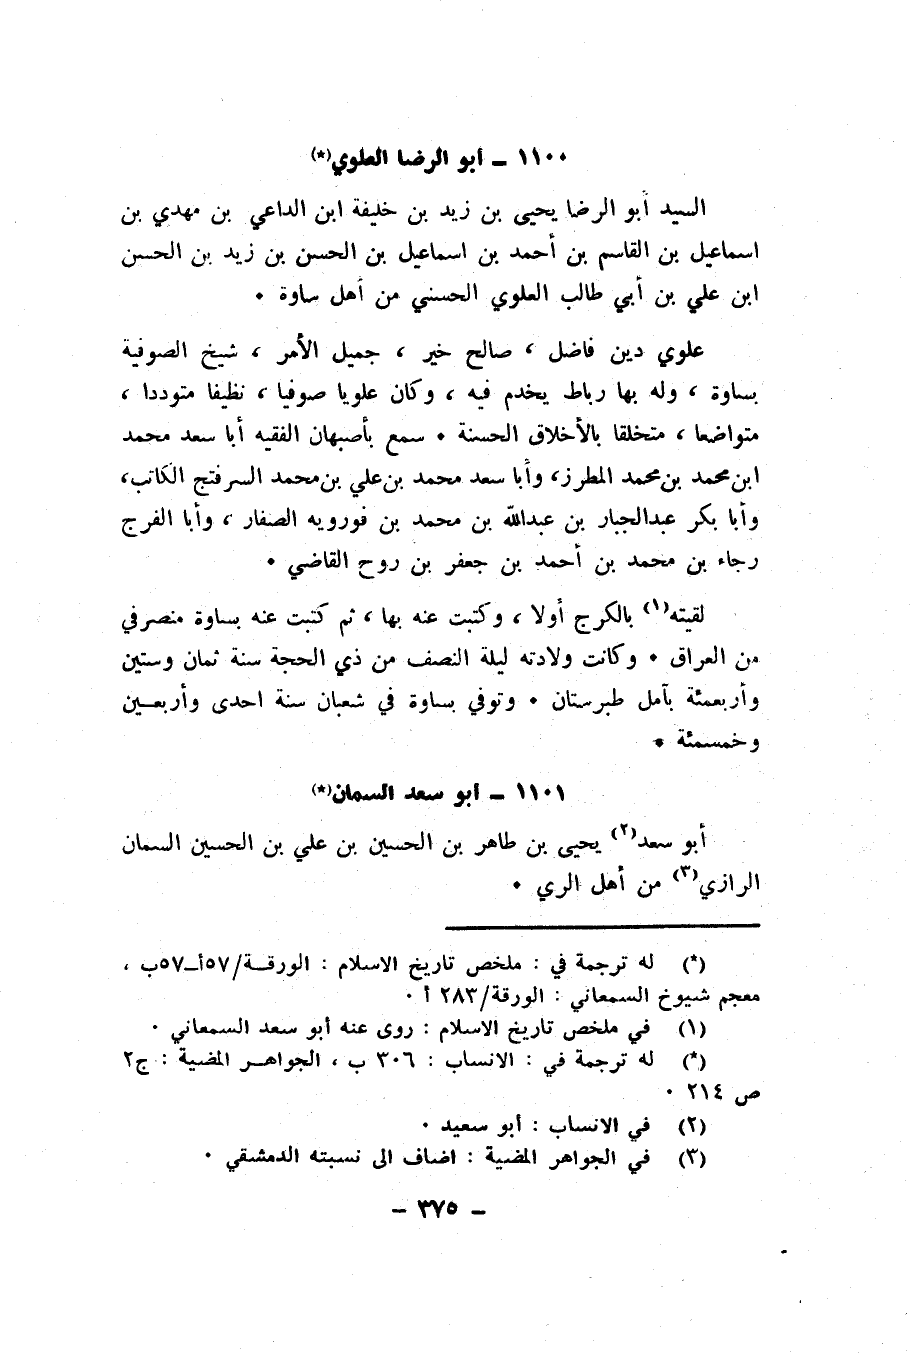 ١١٠٠ ـ أبو الرضا العلوي(*)
السيد أبو الرضا يحيى بن زيد بن خليفة ابن الداعي بن مهدي بن
اسماعيل بن القاسم بن أحمد بن اسماعيل بن الحسن بن زيد بن الحسن
ابن علي بن أبي طالب العلوي الحسني من أهل ساوة ٠
علوي دين فاضل ، صالح خير ، جميل الأمر ، شيخ الصوفية
بساوة ، وله بها رباط يخدم فيه ، وكان علويا صوفيا ، نظيفا متوددا ،
متواضعا ، متخلقا بالأخلاق الحسنة ٠ سمع بأصبهان الفقيه أبا سعد محمد
ابن محمد بن محمد المطرز ، وأبا سعد محمد بن علي بن محمد السرفتج الكاتب ،
وأبا بكر عبدالجبار بن عبدالله بن محمد بن فورويه الصفار ، وأبا الفرج
رجاء بن محمد بن أحمد بن جعفر بن روح القاضي ٠
لقيته(١) بالكرج أولا ، وكتبت عنه بها ، ثم كتبت عنه بساوة منصرفي
من العراق ٠ وكانت ولادته ليلة النصف من ذي الحجة سنة ثمان وستين
وأربعمئة بآمل طبرستان ٠ وتوفي بساوة في شعبان سنة احدى وأربعـين
وخمسمئة ٠
١١٠١ ـ أبو سعد السمان(*)
أبو سعد(٢) يحيى بن طاهر بن الحسين بن علي بن الحسين السمان
الرازي(٣) من أهل الري ٠
(*) له ترجمة في : ملخص تاريخ الاسلام : الورقـة/٥٧أـ٥٧ب ،
معجم شيوخ السمعاني : الورقة/٢٨٣ أ ٠
(١) في ملخص تاريخ الاسلام : روى عنه أبو سعد السمعاني ٠
(*) له ترجمة في : الانساب : ٣٠٦ ب ، الجواهـر المضية : ج٢
ص ٢١٤ ٠
(٢) في الانساب : أبو سعيد ٠
(٣) في الجواهر المضية : اضاف الى نسبته الدمشقي ٠
ـ ٣٧٥ ـ